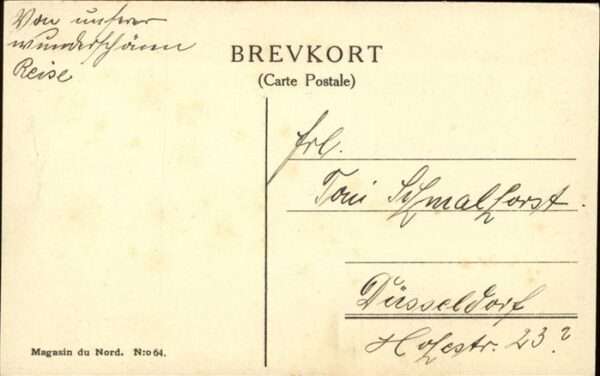 Von unserer
wunderschönen
Reise
BREVKORT
(Carte Postale)
Frl.
Toni Schmalhorst.
Düsseldorf
23?
Magasin du Nord. N:o 64.